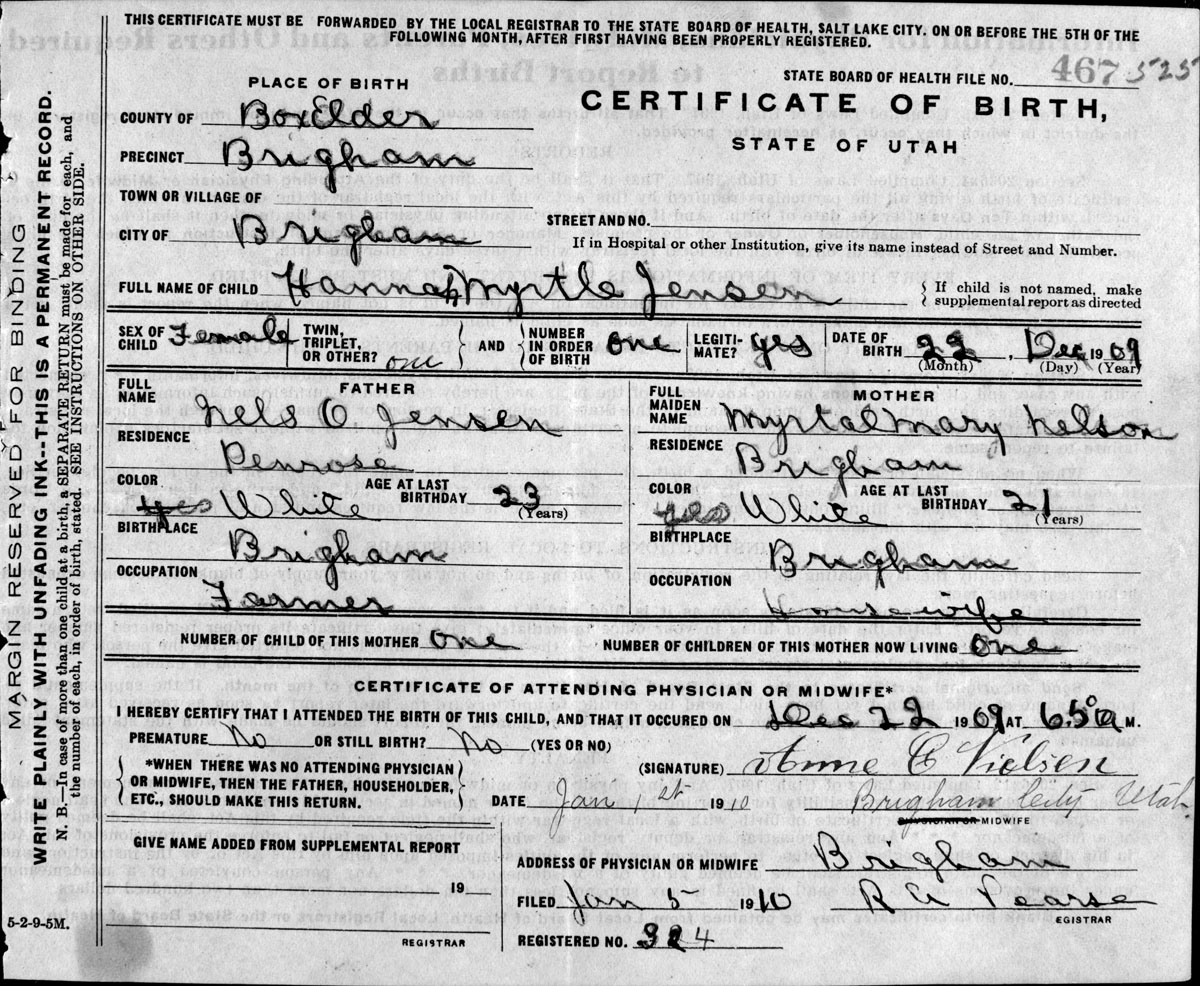 THIS CERTIFICATE MUST BE FORWARDED BY THE LOCAL REGISTRAR TO THE STATE BOARD OF HEALTH, SALT LAKE CITY, ON OR BEFORE THE 5TH OF THE
FOLLOWING MONTH, AFTER FIRST HAVING BEEN PROPERLY REGISTERED.
STATE BOARD OF HEALTH FILE NO. 467 525
PLACE OF BIRTH
CERTIFICATE OF BIRTH,
STATE OF UTAH
COUNTY OF Box Elder
PRECINCT Brigham
TOWN OR VILLAGE OF
CITY OF Brigham
STREET AND NO.
If in Hospital or other Institution, give its name instead of Street and Number.
FULL NAME OF CHILD Hannah Myrtle Jensen { If child is not named, make supplemental report as directed
SEX OF CHILD Female TWIN, TRIPLET, OR OTHER? one } AND { NUMBER IN ORDER OF BIRTH one LEGITI-MATE? yes DATE OF BIRTH 22, Dec 1909
(Month) (Day) (Year)
FATHER
FULL NAME Nels O Jensen
RESIDENCE
Penrose
COLOR yes White AGE AT LAST BIRTHDAY 23
(Years)
BIRTHPLACE
Brigham
OCCUPATION
Farmer
MOTHER
FULL MAIDEN NAME Myrtal Mary Nelson
RESIDENCE
Brigham
COLOR yes White AGE AT LAST BIRTHDAY 21
(Years)
BIRTHPLACE
Brigham
OCCUPATION
Housewife
NUMBER OF CHILD OF THIS MOTHER one NUMBER OF CHILDREN OF THIS MOTHER NOW LIVING one
CERTIFICATE OF ATTENDING PHYSICIAN OR MIDWIFE*
I HEREBY CERTIFY THAT I ATTENDED THE BIRTH OF THIS CHILD, AND THAT IT OCCURED ON Dec 22 1909 AT 6 50 a M.
PREMATURE No OR STILL BIRTH? No (YES OR NO)
{ *WHEN THERE WAS NO ATTENDING PHYSICIAN
OR MIDWIFE, THEN THE FATHER, HOUSEHOLDER,
ETC., SHOULD MAKE THIS RETURN. }
(SIGNATURE) Anne C Nielsen
DATE Jan 1st 1910 Brigham City Utah
PHYSICIAN OR MIDWIFE
GIVE NAME ADDED FROM SUPPLEMENTAL REPORT
19
REGISTRAR
ADDRESS OF PHYSICIAN OR MIDWIFE Brigham
FILED Jan 5 1910 R A Pearse
EGISTRAR
REGISTERED NO. 324
5-2-9-5M.
MARGIN RESERVED FOR BINDING
WRITE PLAINLY WITH UNFADING INK--THIS IS A PERMANENT RECORD.
N. B.—In case of more than one child at a birth, a SEPARATE RETURN must be made for each, and
the number of each, in order of birth, stated. SEE INSTRUCTIONS ON OTHER SIDE.